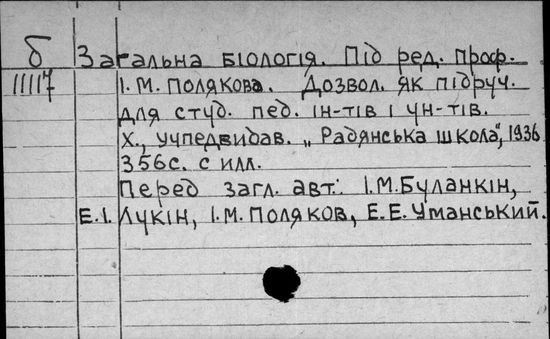 б Загальна біологія. Під ред. проф.
11117 І. М. Полякова. Дозвол. як підруч.
для студ. пед. ін-тів і ун-тів.
Х., учпедвидав. „Радянська школа", 1936
356с. с илл.
Перед загл. авт.: І.М.Буланкін,
Е.І. Лукін, І.М.Поляков, Е.Е.Уманський.